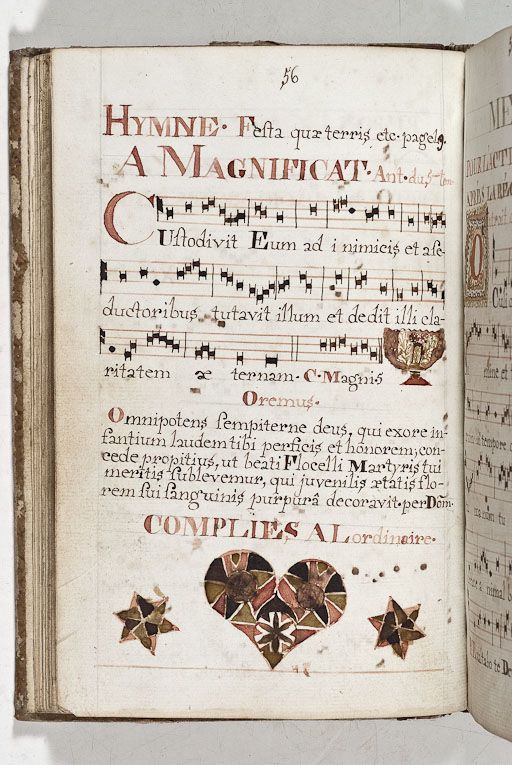 56
HYMNE. Festa quæ terris etc. page 9.
A MAGNIFICAT. Ant. du 5me ton
CUstodivit Eum ad i nimicis et a se-
ductoribus, tutavit illum et dedit illi cla-
ritatem æ ternam. C. Magnis
Oremus.
Omnipotens sempiterne deus, qui ex ore in-
fantium laudem tibi perficis et honorem; con-
cede propitius, ut beati Flocelli Martyris tui
meritis sublevemur, qui juvenilis ætatis flo-
rem sui sanguinis purpurâ decoravit. per Dom̄.
COMPLIES A L ordinaire.
ME
POUR L'ACTI
O